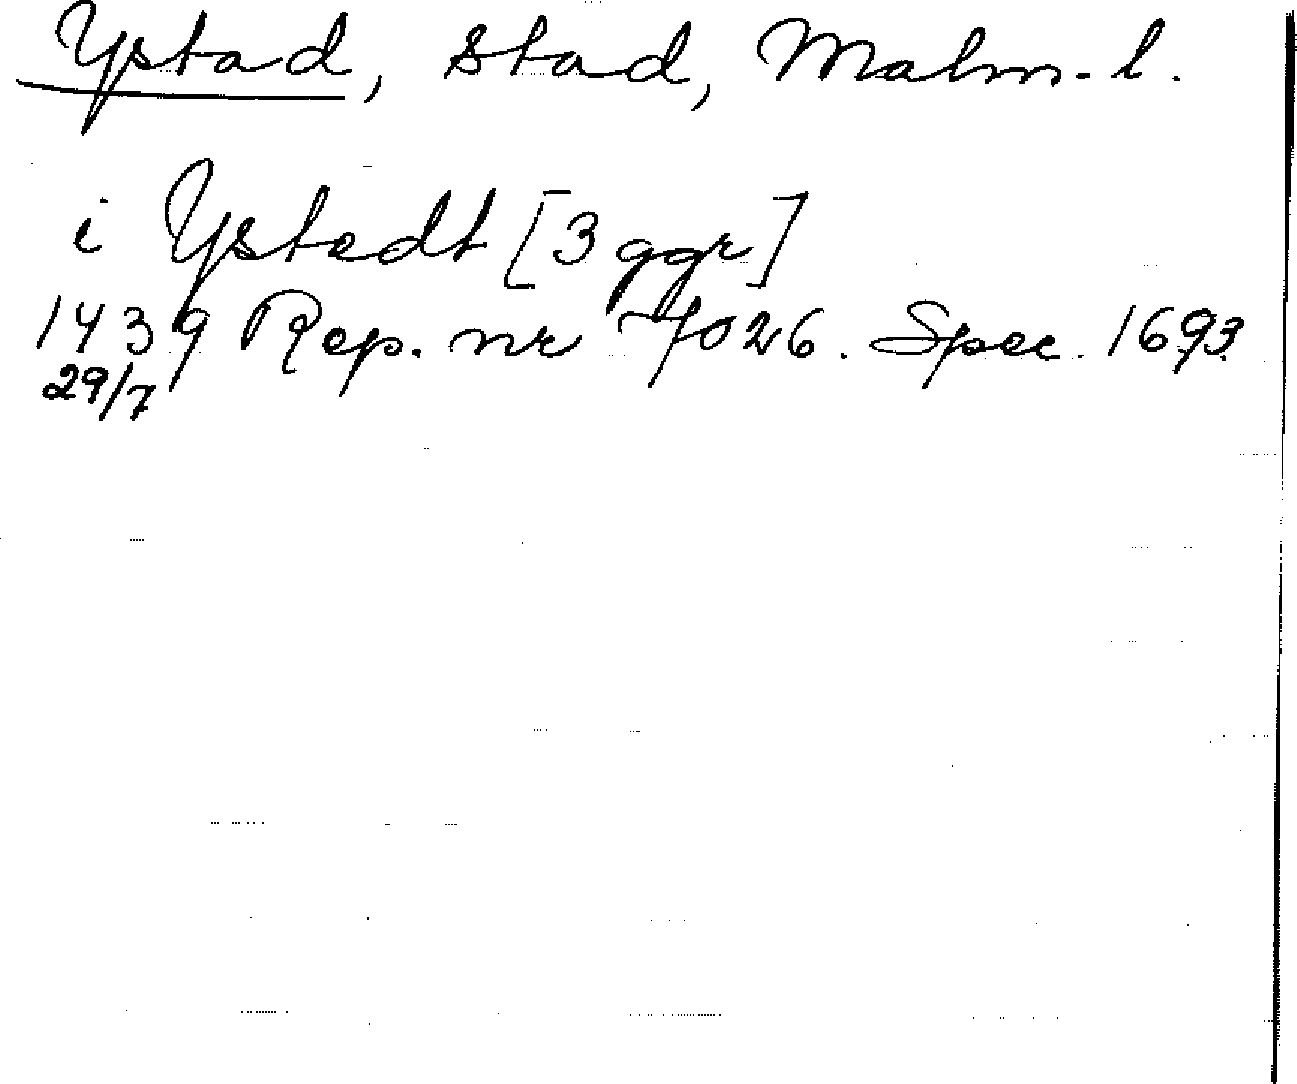 Ystad, Stad, Malm. l.
i Ystedt [3 ggr]
1439 Rep. nr 7026. Spec. 1693.
29/7